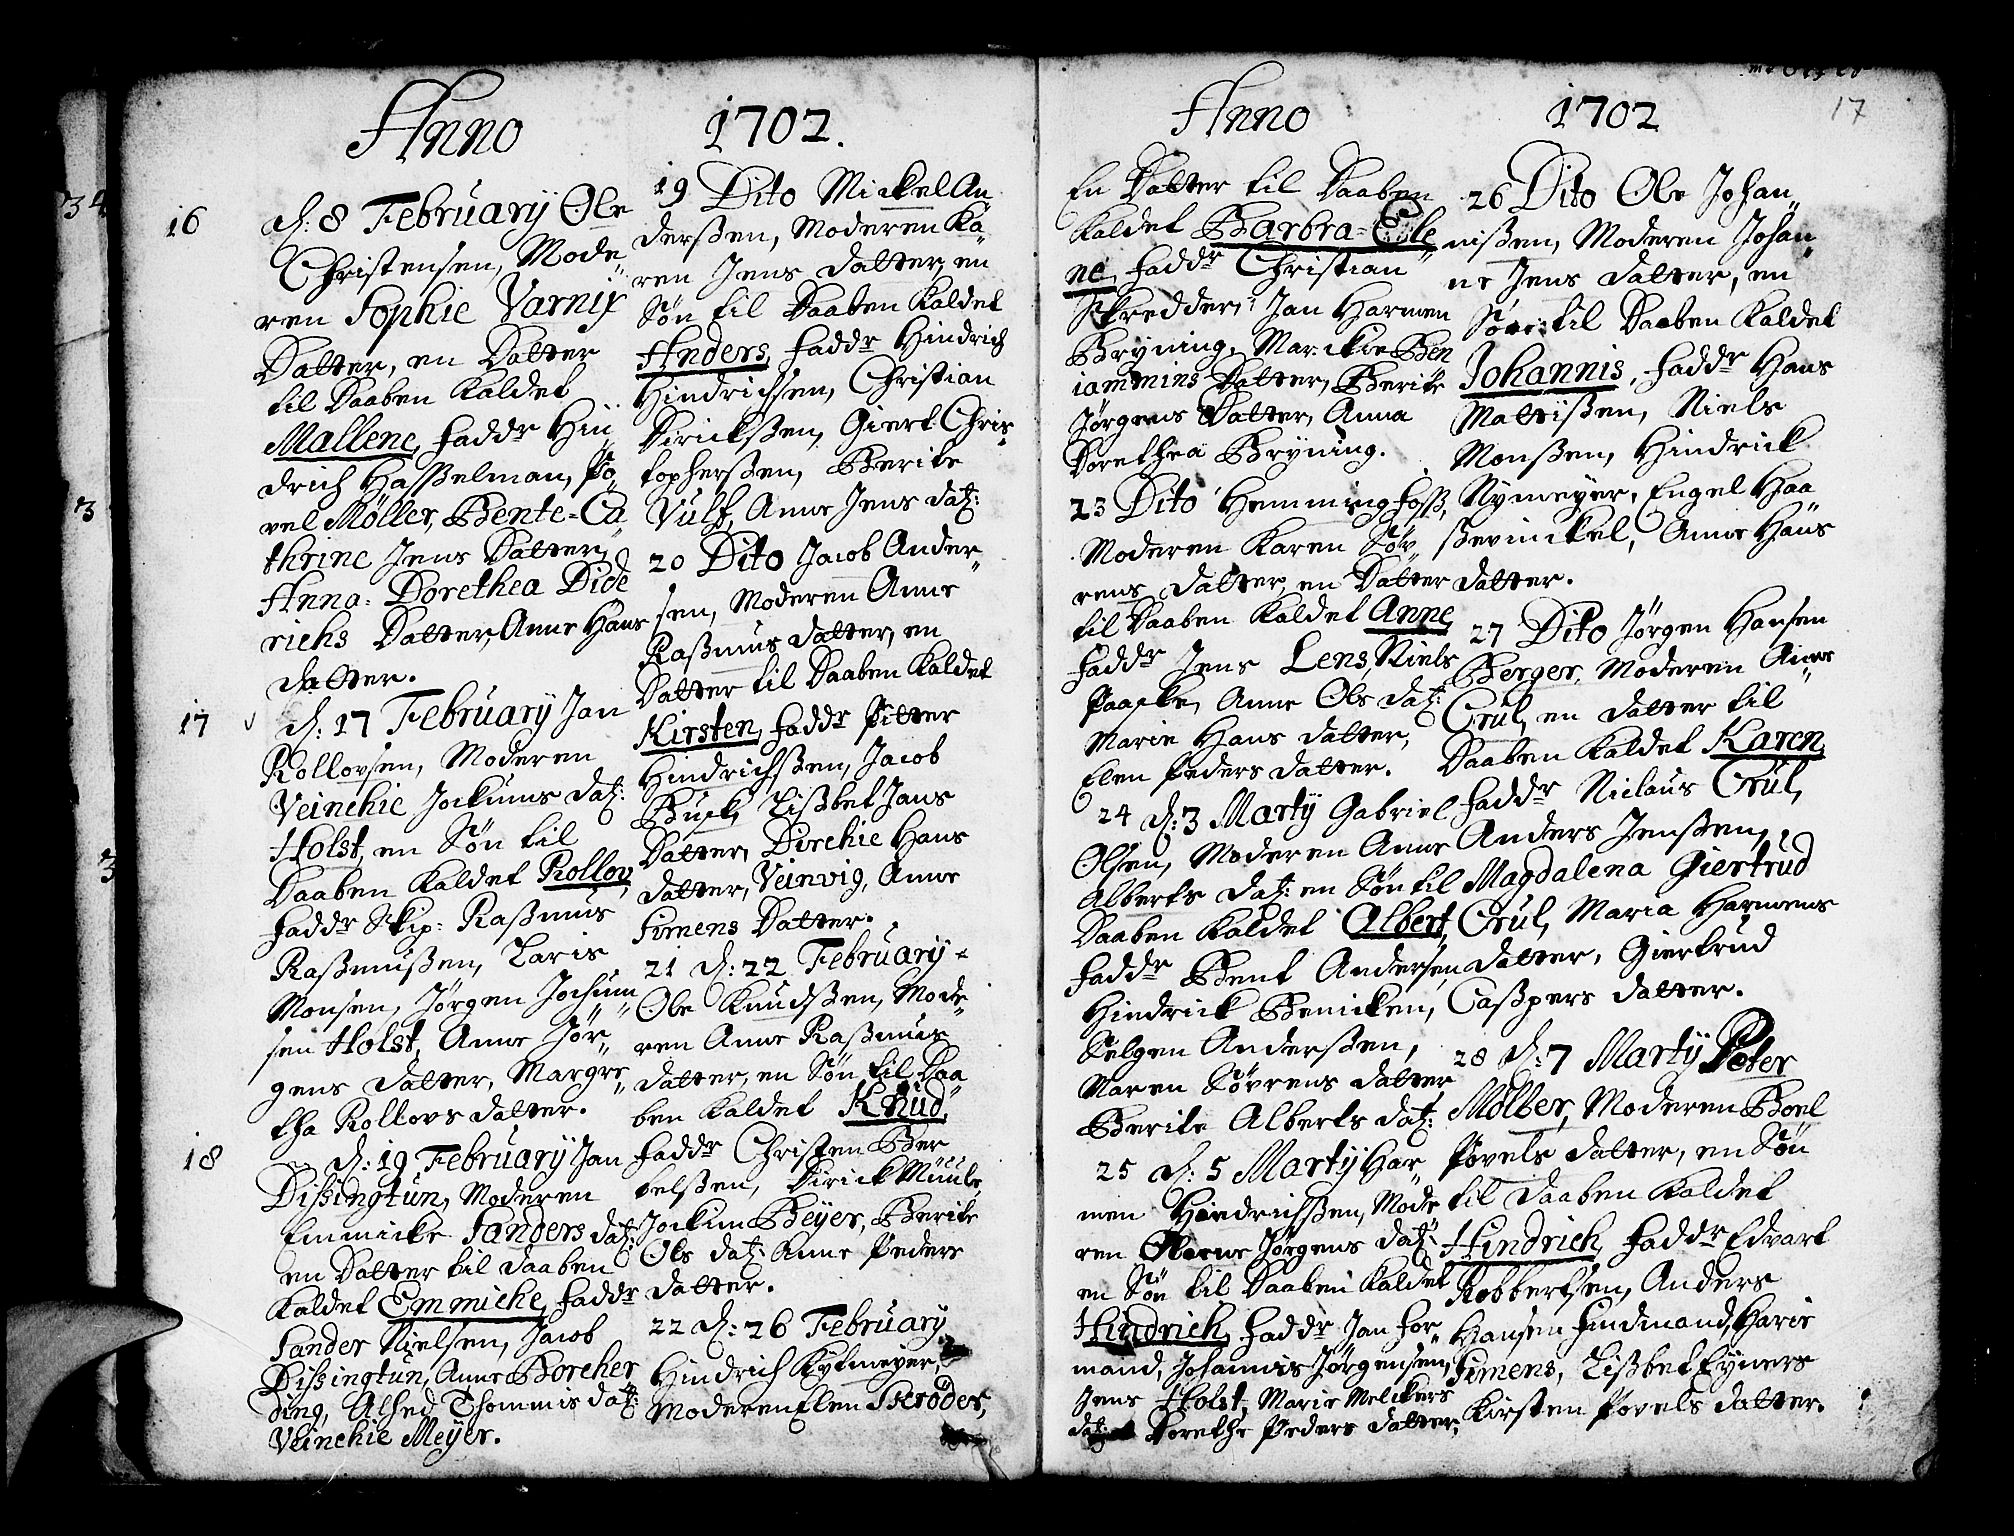 Anno 1702.
16 d: 8 Februarÿ Ole
Christensen, Mode„
ren Sophie Varnix
Datter, en Datter
til Daaben Kaldet
Mallene, Faddr Hin„
drich Hasselman, Po„
vel Møller, Bente=Ca„
thrine Jens Datter,
Anna=Dorethea Dide„
richs Datter, Anne Hans
Datter.
17 d: 17 Februarÿ Jan
Rollovsen, Moderen
Veinchie Jockums dat:
Holst, en Søn til
Daaben Kaldet Rollov,
Faddr Skip: Rasmus
Rasmussen, Laris
Monsen, Jørgen Jochum„
sen Holst, Anne Jør„
gens Datter, Margre„
tha Rollovs Datter.
18 d: 19 Februarÿ Jan
Dissingtun, Moderen
Emmicke Sanders dat:
en Datter til Daaben
Kaldet Emmiche, Faddr
Sander Nielsen, Jacob
Dissingtun, Anne Borcher
ding, Alhed Thommis dat:
Veinchie Meyer.
19 Dito Mickel An„
derssen, Moderen Ka„
ren Jens Datter, en
Søn til Daaben Kaldet
Anders, Faddr Hindrich
Hindrichsen, Christian
Dirickssen, Giert Chris„
topherssen, Berite
Vulf, Anne Jens dat:
20 Dito Jacob Ander„
sen, Moderen Anne
Rasmus Datter, en
Datter til Daaben Kaldet
Kirsten, Faddr Pitter
Hindrichssen, Jacob
Buck, Lisbet Jans
Datter, Dirchie Hans
Datter, Veinvig, Anne
Simens Datter.
21 d: 22 Februarÿ
Ole Knudssen, Mode„
ren Anne Rasmus
Datter, en Søn til Daa„
ben Kaldet Knud,
Faddr Christen Ber
telssen, Dirick Muule,
Jockim Beÿer, Berite
Ols dat: Anne Peders
Datter.
22 d: 26 Februarÿ
Hindrich Rytmeyer,
Moderen Elen Skrøder,
17
Anno 1702
En Datter til Daaben
Kaldet Barbra=Ele„
ne, Faddr Christian
Skredder, Jan Harmen
Bryning, Marickie Ben
iammins Datter, Berite
Jørgens Datter, Anna
Dorethea Bryning.
23 Dito Hemming Foss,
Moderen Karen Søv„
rens Datter, en Datter
til Daaben Kaldet Anne,
Faddr Jens Lens, Niels
Paaske, Anne Ols dat:
Marie Hans Datter,
Elen Peders Datter.
24 d: 3 Martÿ Gabriel
Olsen, Moderen Anne
Alberts dat: en Søn til
Daaben Kaldet Albert,
Faddr Bent Andersen
Hindrick Benicken,
Selgen Anderssen,
Maren Søvrens Datter
Berite Alberts dat:
25 d: 5 Martÿ Har„
men Hindrichssen, Mode„
ren Jørgens dat:
en Søn til Daaben Kaldet
Hindrich, Faddr Jan For„
mand, Johannis Jørgensen,
Jens Holst, Marie Melckers
dat: Dorethe Peders Datter,
26 Dito Ole Johan„
nissen, Moderen Johan„
ne Jens Datter, en
Søn til Daaben Kaldet
Johannis, Faddr Hans
Mattissen, Niels
Monssen, Hindrick
Nymeyer, Engel Haa
ssevinckel, Anne Hans
Datter.
27 Dito Jørgen Hansen
Berger, Moderen Anne
Crul, en Datter til
Daaben Kaldet Karen,
Faddr Niclaus Crul,
Anders Jenssen,
Magdalena Giertrud
Crul, Maria Harmens
Datter, Giertrud
Caspers Datter.
28 d: 7 Martÿ Peter
Møller, Moderen Boel
Povels Datter, en Søn
til Daaben Kaldet
Hindrich, Faddr Edvart
Robbertsen, Anders
Hansen Findmand, Haris
Simens, Lisbet Eyners
Kirsten Povels Datter.